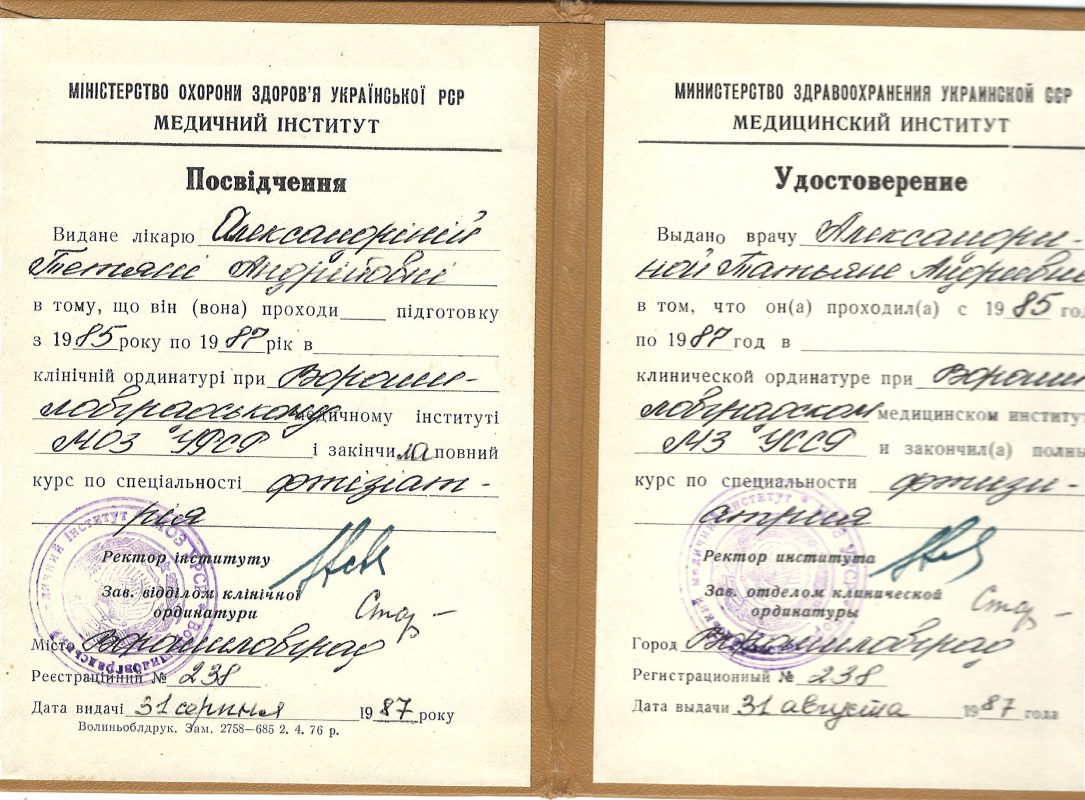 МІНІСТЕРСТВО ОХОРОНИ ЗДОРОВ'Я УКРАЇНСЬКОЇ РСР
МЕДИЧНИЙ ІНСТИТУТ
Посвідчення
Видане лікарю Александріній
Тетяні Андріївні
в тому, що він (вона) проходи___ підготовку
з 1985 року по 1987 рік в
клінічній ординатурі при Вороши-
ловградському медичному інституті
МОЗ УРСР і закінчила повний
курс по спеціальності фтізіат-
рия
Ректор інституту
Зав. відділом клінічної
ординатури
Місто Ворошиловград
Реєстраційний № 238
Дата видачі 31 серпня 1987 року
Волиньоблдрук. Зам. 2758—685 2. 4. 76 р.
МИНИСТЕРСТВО ЗДРАВООХРАНЕНИЯ УКРАИНСКОЙ ССР
МЕДИЦИНСКИЙ ИНСТИТУТ
Удостоверение
Выдано врачу Александри-
ной Татьяне Андреевне
в том, что он(а) проходил(а) с 1985 год
по 1987 год в
клинической ординатуре при Вороши
ловградском медицинском институт
МЗ УССР и закончил(а) полны
курс по специальности фтизи-
атрия
Ректор института
Зав. отделом клинической
ординатуры
Город Ворошиловград
Регистрационный № 238
Дата выдачи 31 августа 1987 года